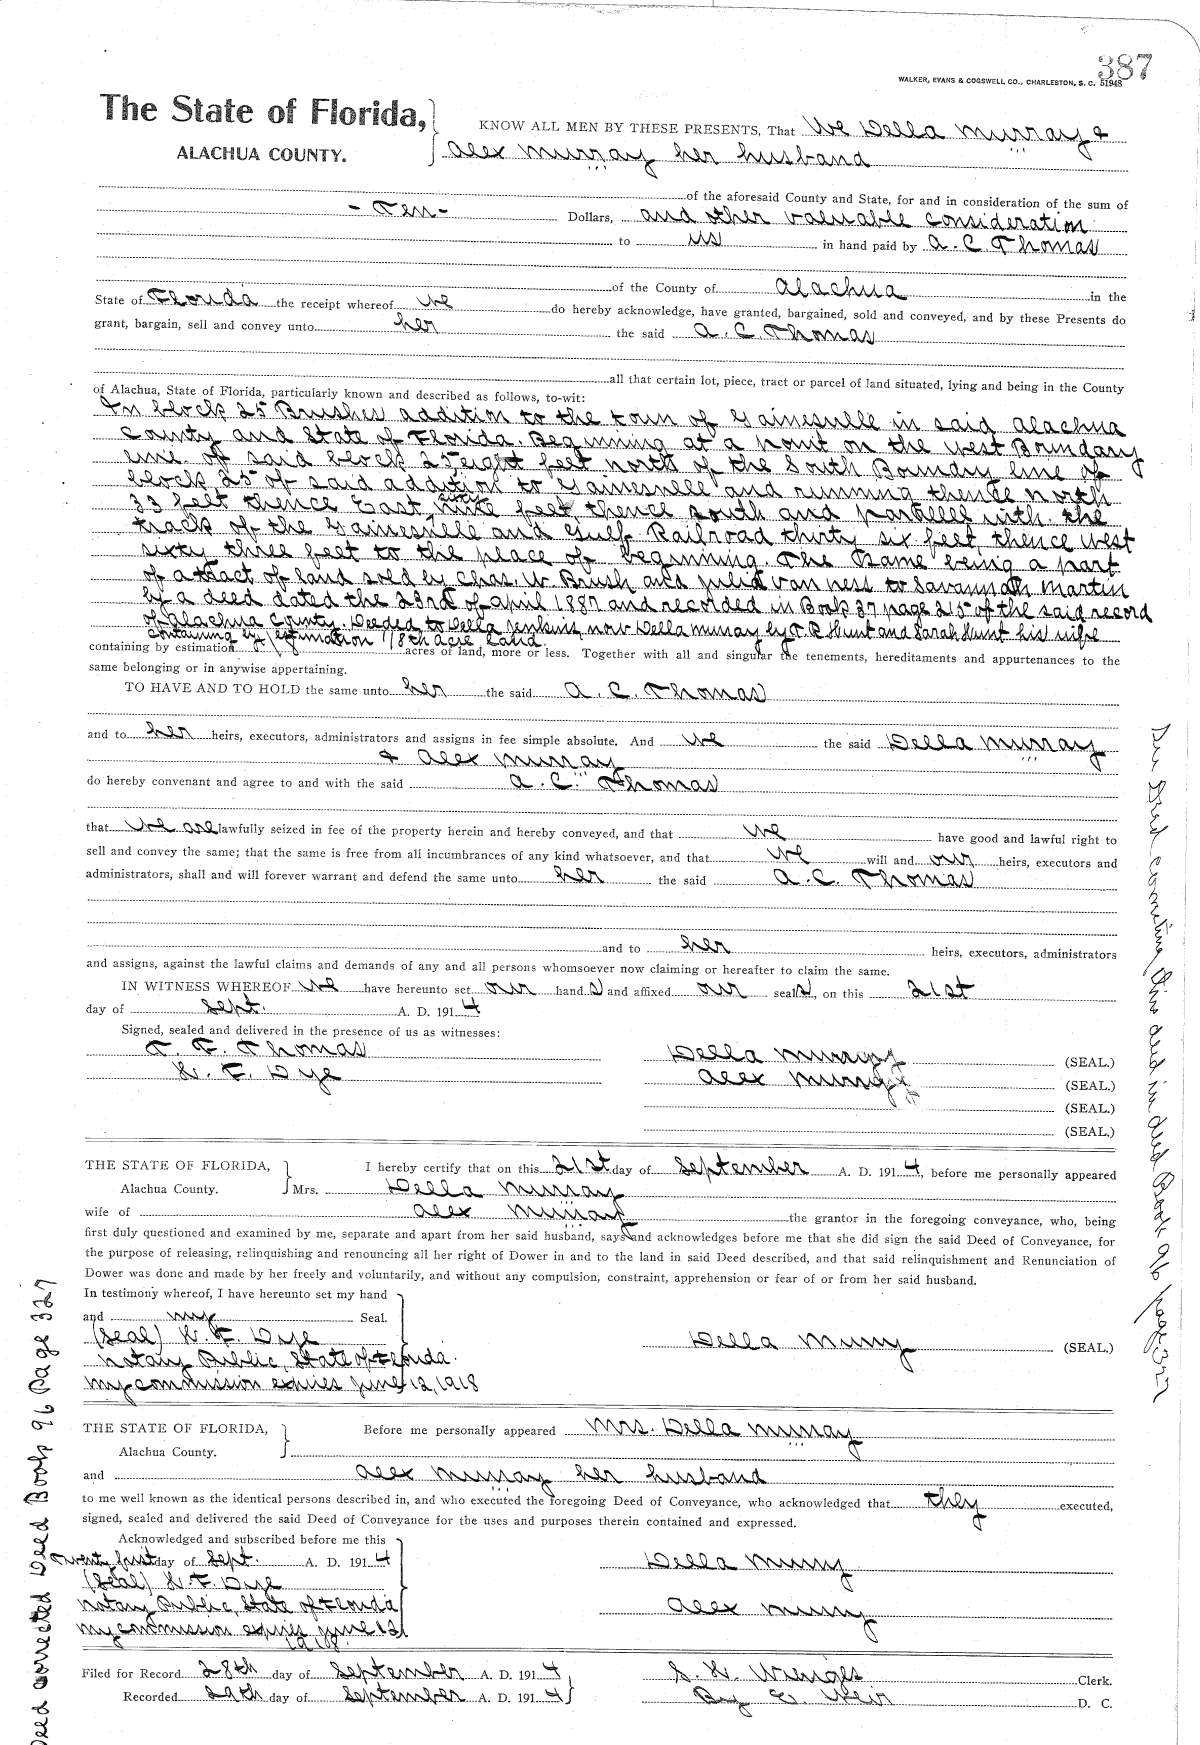 387
WALKER, EVANS & COGSWELL CO., CHARLESTON, S. C. 51948
The State of Florida,
ALACHUA COUNTY.
KNOW ALL MEN BY THESE PRESENTS, That We Della Murray &
Alex Murray her husband
of the aforesaid County and State, for and in consideration of the sum of
- Ten - Dollars, and other valuable consideration
to us in hand paid by A. C. Thomas
of the County of Alachua in the
State of Florida the receipt whereof we do hereby acknowledge, have granted, bargained, sold and conveyed, and by these Presents do
grant, bargain, sell and convey unto her the said A. C. Thomas
all that certain lot, piece, tract or parcel of land situated, lying and being in the County
of Alachua, State of Florida, particularly known and described as follows, to-wit:
In block 25 Brushes addition to the town of Gainesville in said Alachua
County and State of Florida. Beginning at a point on the West Boundary
line of said block 25 eight feet north of the South Boundry line of
block 25 of said addition to Gainesville and running thence North
33 feet thence East sixty nine feet, thence south and parallel with the
track of the Gainesville and Gulf Railroad thirty six feet, thence West
sixty three feet to the place of beginning. The Same being a part
of a tract of land sold by Chas. W. Brush and Juliet Van Ness to Savannah Martin
by a deed dated the 23rd of April 1887 and recorded in Book 37 page 215 of the said record
of Alachua County. Deeded to Della Jenkins, now Della Murray by T. R. Hunt and Sarah Hunt his wife
containing by estimation 1/8th acre land.
containing by estimation acres of land, more or less. Together with all and singular the tenements, hereditaments and appurtenances to the
same belonging or in anywise appertaining.
TO HAVE AND TO HOLD the same unto her the said A. C. Thomas
and to her heirs, executors, administrators and assigns in fee simple absolute. And we the said Della Murray
& Alex Murray
do hereby convenant and agree to and with the said A. C. Thomas
that we are lawfully seized in fee of the property herein and hereby conveyed, and that we have good and lawful right to
sell and convey the same; that the same is free from all incumbrances of any kind whatsoever, and that we will and our heirs, executors and
administrators, shall and will forever warrant and defend the same unto her the said A. C. Thomas
and to her heirs, executors, administrators
and assigns, against the lawful claims and demands of any and all persons whomsoever now claiming or hereafter to claim the same.
IN WITNESS WHEREOF we have hereunto set our hands and affixed our seals, on this 21st
day of Sept. A. D. 1914
Signed, sealed and delivered in the presence of us as witnesses:
T. F. Thomas Della Murray (SEAL.)
W. F. Dye Alex Murray (SEAL.)
(SEAL.)
(SEAL.)
THE STATE OF FLORIDA, I hereby certify that on this 21st day of September A. D. 1914, before me personally appeared
Alachua County. Mrs. Della Murray
wife of Alex Murray the grantor in the foregoing conveyance, who, being
first duly questioned and examined by me, separate and apart from her said husband, says and acknowledges before me that she did sign the said Deed of Conveyance, for
the purpose of releasing, relinquishing and renouncing all her right of Dower in and to the land in said Deed described, and that said relinquishment and Renunciation of
Dower was done and made by her freely and voluntarily, and without any compulsion, constraint, apprehension or fear of or from her said husband.
In testimony whereof, I have hereunto set my hand
and my Seal.
(Seal) W. F. Dye Della Murry (SEAL.)
Notary Public, State of Florida.
My commission expires June 12, 1918
THE STATE OF FLORIDA, Before me personally appeared Mrs. Della Murray
Alachua County.
and Alex Murray her husband
to me well known as the identical persons described in, and who executed the foregoing Deed of Conveyance, who acknowledged that they executed,
signed, sealed and delivered the said Deed of Conveyance for the uses and purposes therein contained and expressed.
Acknowledged and subscribed before me this
Twenty first day of Sept. A. D. 1914 Della Murry
(Seal) W. F. Dye
Notary Public, State of Florida Alex Murry
My commission expires June 12
1918
Filed for Record 28th day of September A. D. 1914 S. H. Wienges Clerk.
Recorded 29th day of September A. D. 1914 By E. Weir D. C.
See Deed correcting this deed in deed Book 96 page 327
Deed corrected Deed Book 96 Page 327